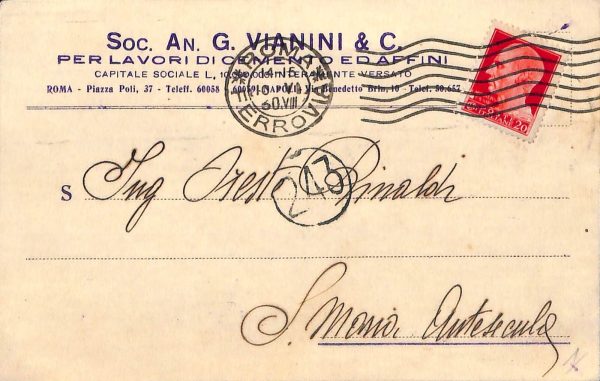 Soc. An. G. VIANINI & C.
PER LAVORI DI CEMENTO ED AFFINI
CAPITALE SOCIALE L. INTERAMENTE VERSATO
ROMA - Piazza Poli, 37 - Teleff. 60058 NAPOLI - Via Benedetto Brin, 10 - Telef. 50.657
ROMA
FERROVIA
243
20
S Ing Oreste Rinaldi
S. Maria Antesecula